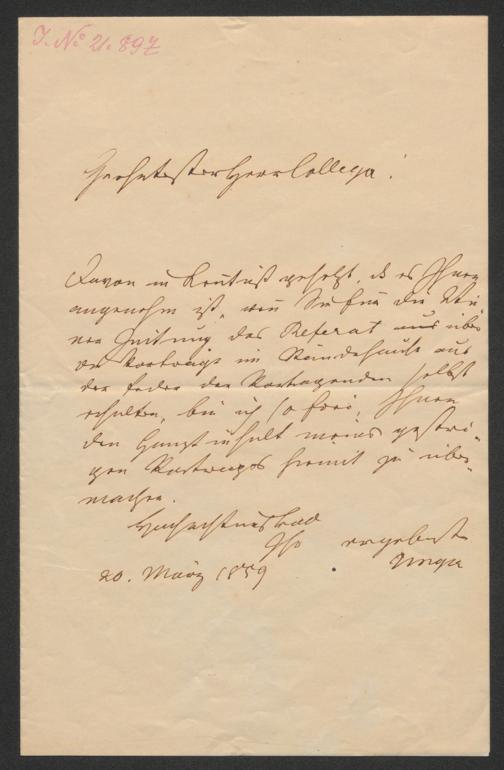 J. No 21.897
Geehrtester Herr Collega!
Davon in Kentniß gesetzt, daß es Ihnen
angenehm ist, wenn Sie für die Wie-
ner Zeitung das Referat aus über
die Vorträge im Ständehause aus
der Feder der Vortragenden selbst
erhalten, bin ich so frei, Ihnen
den Hauptinhalt meines gestri-
gen Vortrages hiemit zu über-
machen.
Hochachtungsvoll
Ihr ergebenster
20. März 1859 Unger